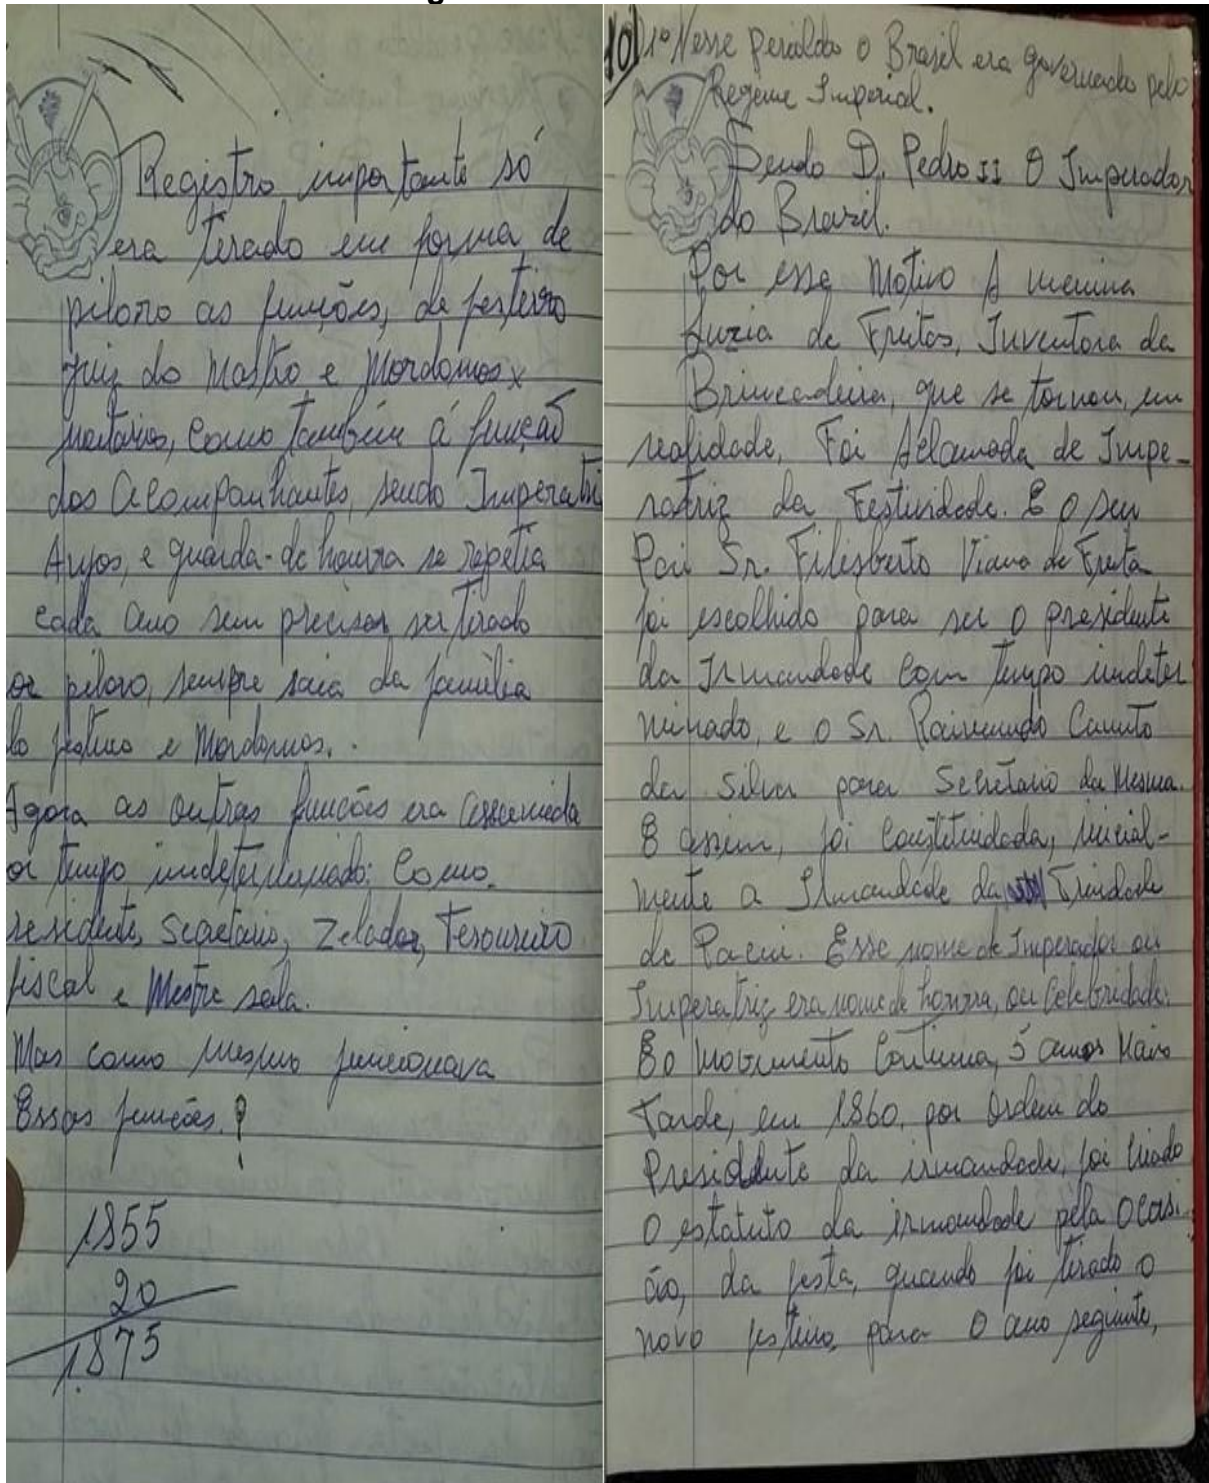 Registro importante só
era terado em forma de
piloro as funções, de festeiro
juiz do Mastro e Mordomos x
noitarios, como também á função
dos acompanhantes, sendo Imperatri
Anjos, e guarda-de honrra se repetia
cada ano sem precisar ser tirado
or piloro, sempre saia da família
do festeiro e Mordomos.
Agora as outras funcões era assumida
or tempo indeterminado: Como.
residente, Secretario, Zelador, Tesoureiro
fiscal e Mestre sala.
Mas como mesmo funcionava
Essas funcões.?
1855
20
1875
10) 1º Nesse perioldo o Brasil era governado pelo
Regime Imperial.
Sendo D. Pedro II O Imperador
do Brazil.
Por esse Motivo A menina
Luzia de Freitas, Inventora da
Brincadeira, que se tornou, em
realidade, Foi Aclamada de Impe-
ratriz da Festividade. E o seu
Pai Sr. Filisberto Viana de Freita
foi escolhido para ser o presidente
da Irmandade com tempo indeter
minado, e o Sr. Raimundo Canuto
da Silva para Secretario da Mesma.
E assim, foi constituidada, inicial-
mente a Irmandade da Trindade
de Pacui. Esse nome de Imperador ou
Imperatriz era nome de honrra, ou celebridade.
E o movimento Continua, 5 anos Mais
Tarde, em 1860, por ordem do
Presidente da irmandade, foi criado
O estatuto da irmandade pela ocasi
ão, da festa, quando foi tirado o
novo festeiro, para o ano seguinte,